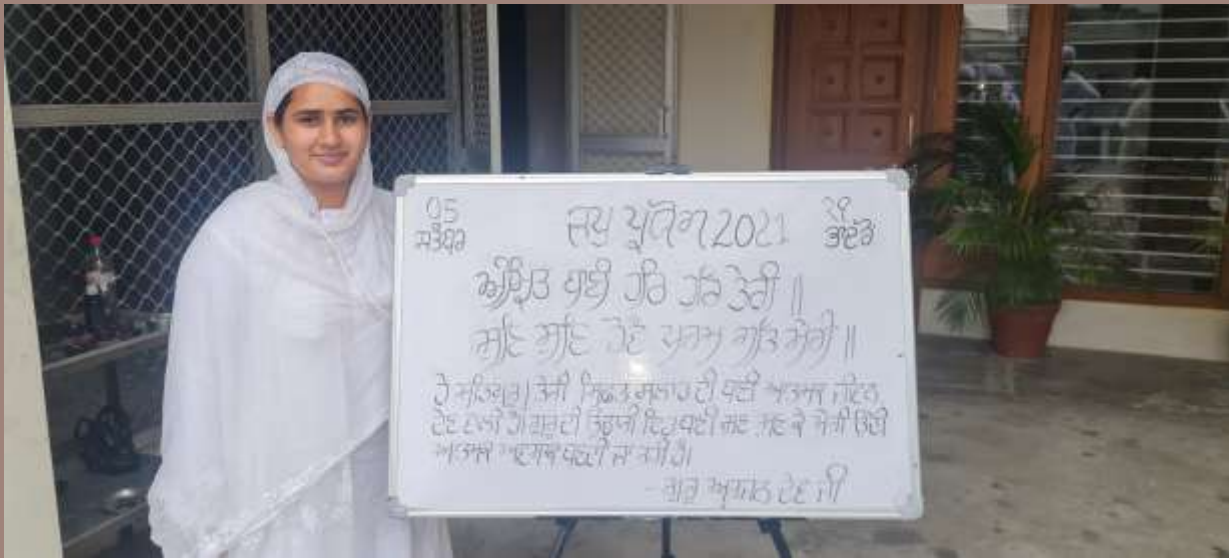 05 ਜਪੁ ਪ੍ਰਯੋਗ 2021 ੨੧
ਸਤੰਬਰ ਭਾਦੋਂ
ਅੰਮ੍ਰਿਤ ਬਾਣੀ ਹਰਿ ਹਰਿ ਤੇਰੀ ॥
ਸੁਣਿ ਸੁਣਿ ਹੋਵੈ ਪਰਮ ਗਤਿ ਮੇਰੀ ॥
ਹੇ ਸਤਿਗੁਰੂ! ਤੇਰੀ ਸਿਫ਼ਤ ਸਲਾਹ ਦੀ ਬਾਣੀ ਆਤਮਕ ਜੀਵਨ
ਦੇਣ ਵਾਲੀ ਹੈ। ਗੁਰੂ ਦੀ ਉਚਾਰੀ ਇਹ ਬਾਣੀ ਸੁਣ ਸੁਣ ਕੇ ਮੇਰੀ ਉੱਚੀ
ਆਤਮਕ ਅਵਸਥਾ ਬਣਦੀ ਜਾ ਰਹੀ ਹੈ।
- ਗੁਰੂ ਅਰਜਨ ਦੇਵ ਜੀ